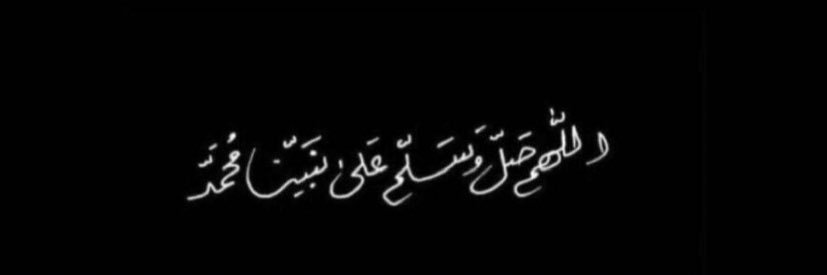 اللهم صَلِّ وَسَلِّم عَلىٰ نَبَيِّنا مُحمَّد